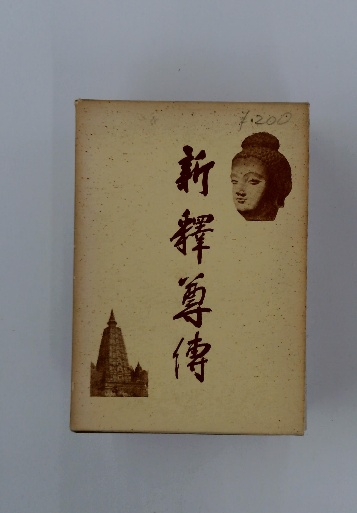 ¥.200
新釋尊傳